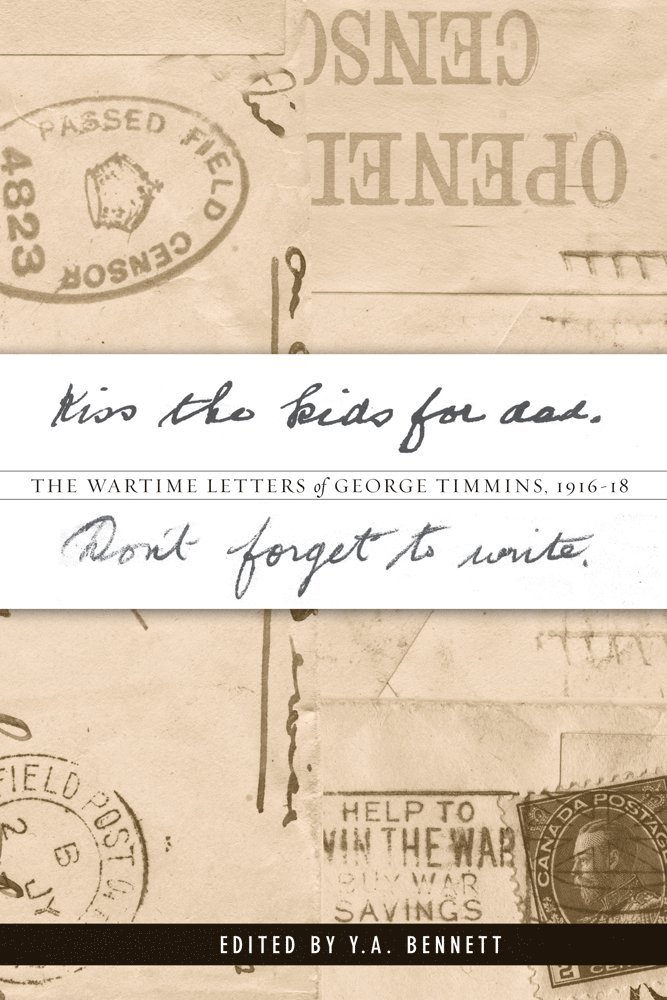 CENSO
OPENE
PASSED FIELD
CENSOR
4823
Kiss the kids for dad.
THE WARTIME LETTERS of GEORGE TIMMINS, 1916-18
Don't forget to write.
FIELD POST OF
2
B
JY
HELP TO
WIN THE WAR
BUY WAR
SAVINGS
CANADA POSTAGE
2
CEN
EDITED BY Y.A. BENNETT